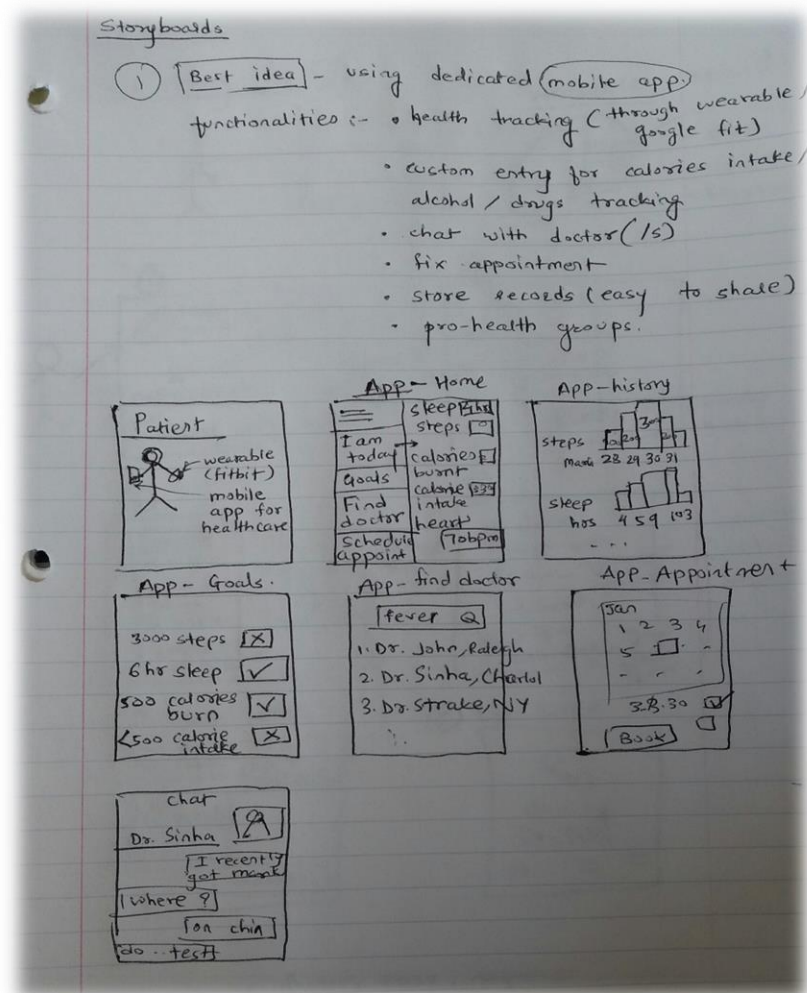 Storyboards
① Best idea - using dedicated mobile app.
functionalities :- • health tracking (through wearable /
google fit)
• custom entry for calories intake /
alcohol / drugs tracking
• chat with doctor (/s)
• fix appointment
• store records (easy to share)
• pro-health groups.
Patient
wearable
(fitbit)
mobile
app for
healthcare
App - Home
I am
today
Goals
Find
doctor
Schedule
appoint
sleep
steps
calories
burnt
calorie
intake
heart
70bpm
App - history
steps
28 29 30 31
sleep
hrs 4 5 9
...
App - Goals.
3000 steps X
6 hr sleep ✓
500 calories ✓
burn
<500 calorie X
intake
App - find doctor
fever
1. Dr. John, Raleigh
2. Dr. Sinha,
3. Dr. Strake, NY
App - Appointment
Jan
1 2 3 4
5 - -
- - -
Book
chat
Dr. Sinha
I recently
got mark
where ?
on chin
do .. test